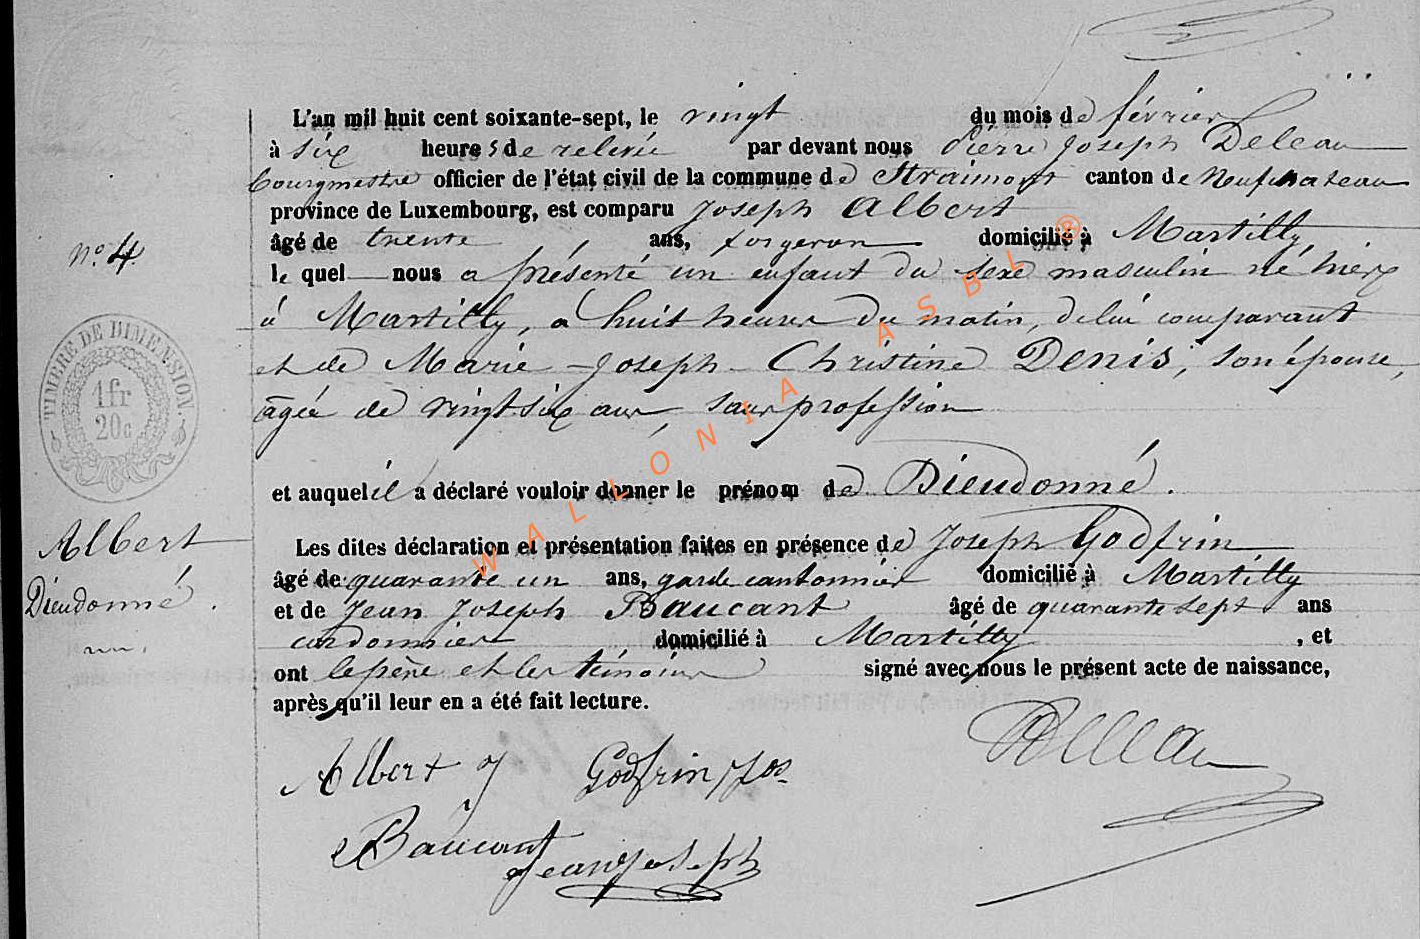 L'an mil huit cent soixante-sept, le vingt du mois de février
à six heures de relevée par devant nous Pierre Joseph Deleau
bourgmestre officier de l'état civil de la commune de Straimont canton de Neufchateau
province de Luxembourg, est comparu Joseph Albert
âgé de trente ans, forgeron domicilié à Martilly
N° 4.
le quel nous a présenté un enfant du sexe masculin né hier
à Martilly, à huit heures du matin, de lui comparant
et de Marie-Joseph-Christine Denis, son épouse,
TIMBRE DE DIMENSION.
1 fr
20c
âgée de vingt six ans, sans profession
et auquel il a déclaré vouloir donner le prénom de Dieudonné.
Albert
Dieudonné.
Les dites déclaration et présentation faites en présence de Joseph Godfrin
âgé de quarante un ans, garde cantonnier domicilié à Martilly
et de Jean Joseph Baucant âgé de quarante sept ans
cordonnier domicilié à Martilly, et
ont le père et les témoins signé avec nous le présent acte de naissance,
après qu'il leur en a été fait lecture.
Albert J
Godfrin Jos
Deleau
Baucant
Jean Joseph
WALLONIA ASBL ®